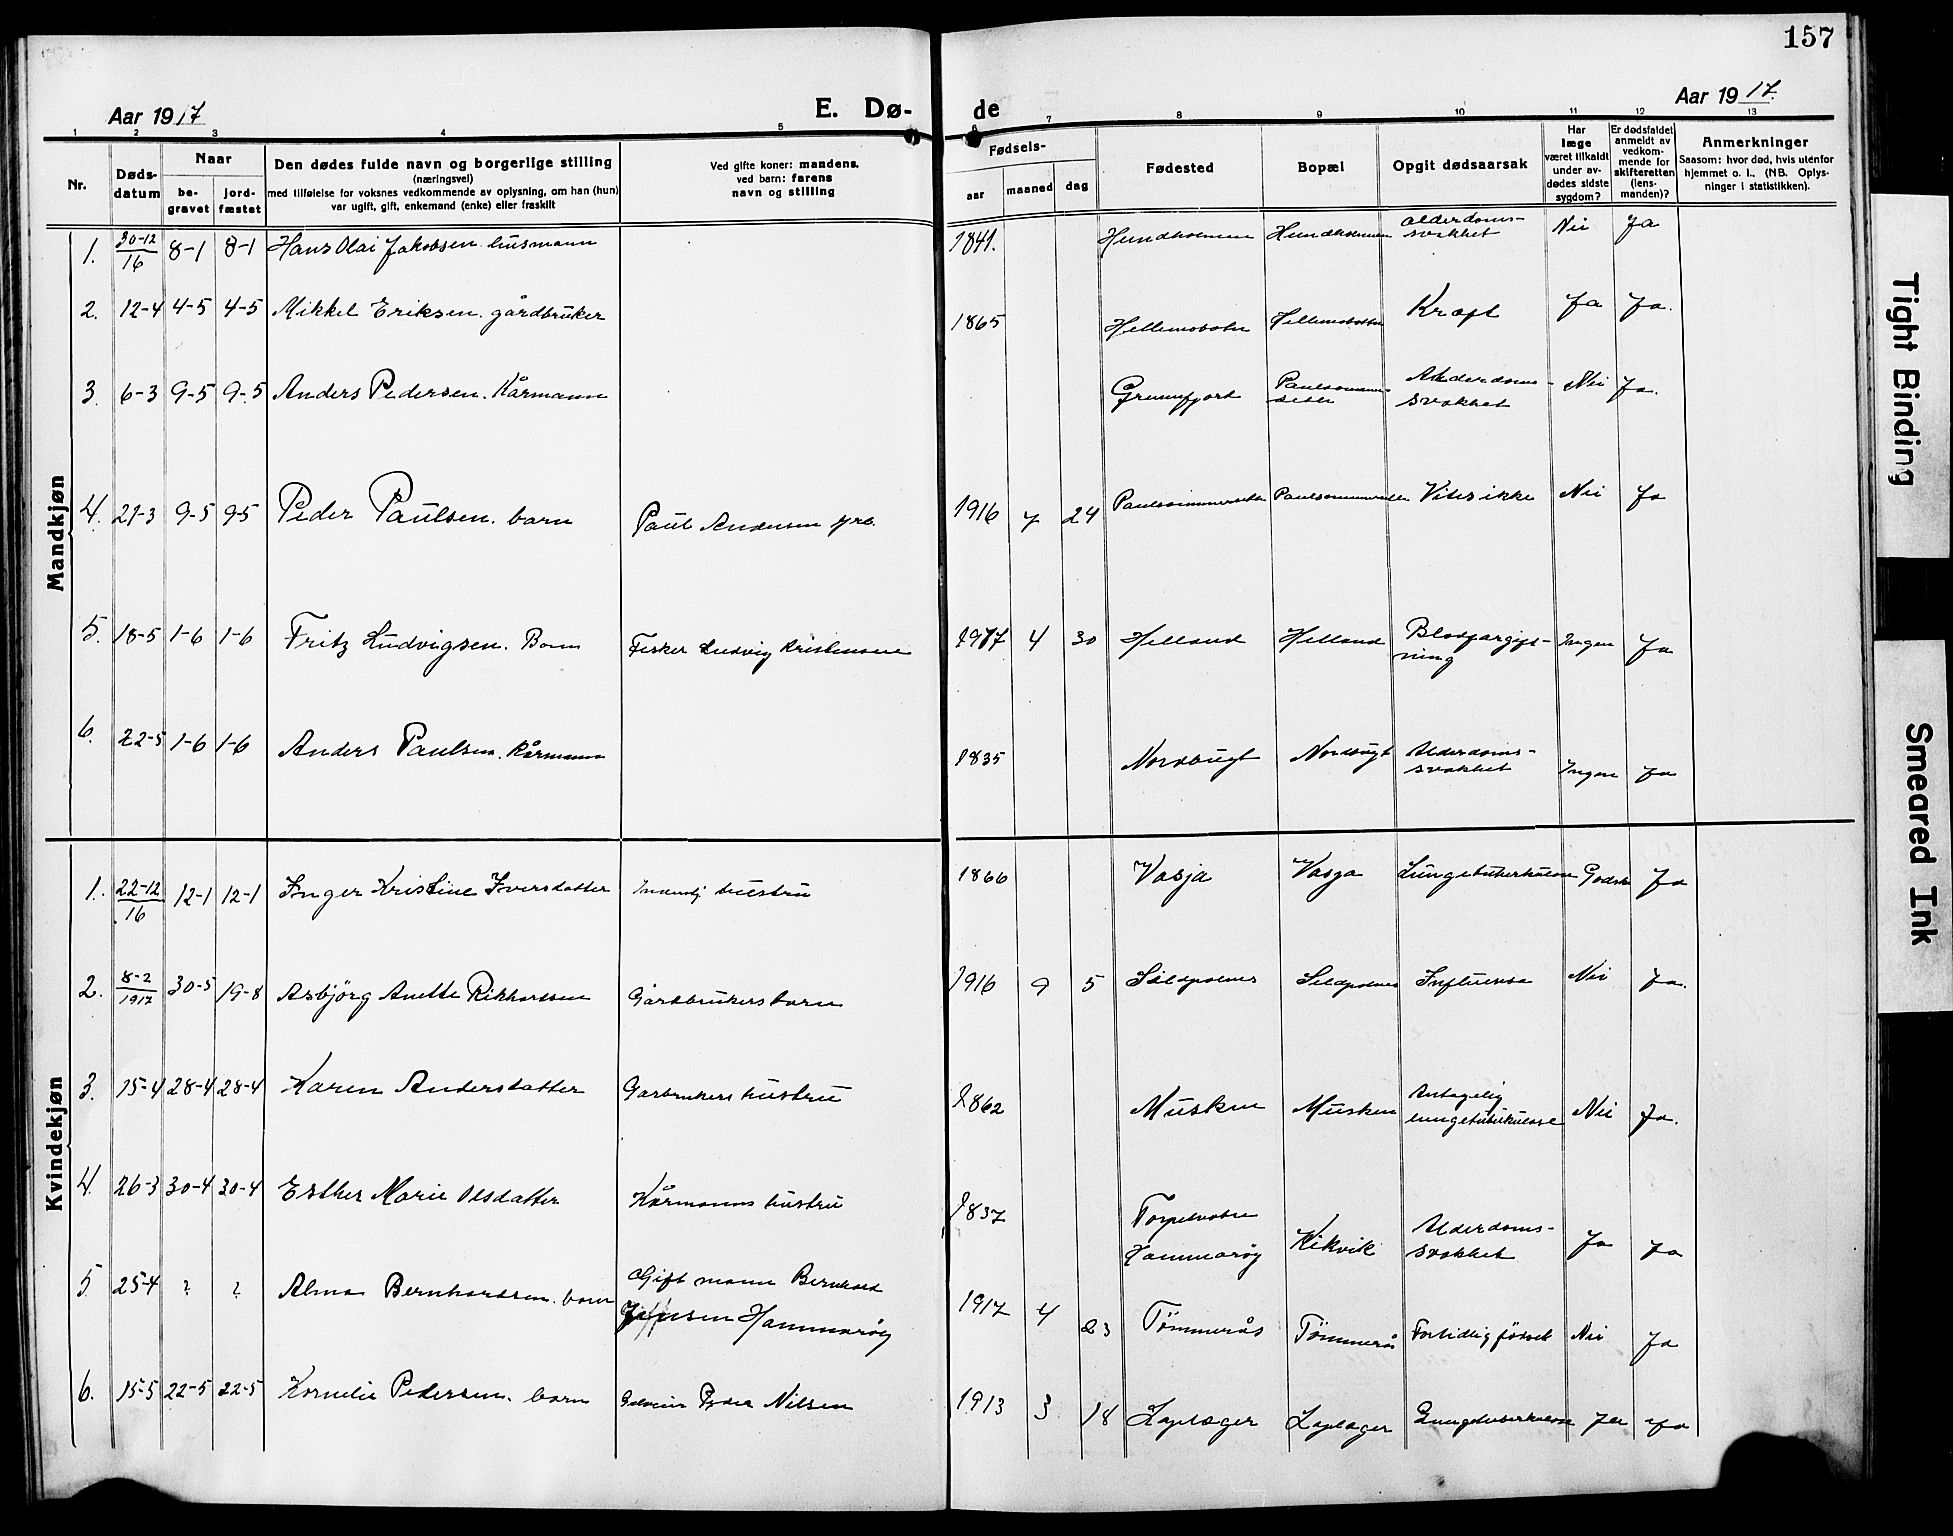 157
Aar 1917
E. Dø-
de
Aar 1917.
1 2 3 4 5 6 7 8 9 10 11 12 13
Nr.
Døds-
datum
Naar
be-
gravet
jord-
fæstet
Den dødes fulde navn og borgerlige stilling
(næringsvei)
med tilføielse for voksnes vedkommende av oplysning, om han (hun)
var ugift, gift, enkemand (enke) eller fraskilt
Ved gifte koner: mandens,
ved barn: farens
navn og stilling
Fødsels-
aar
maaned
dag
Fødested
Bopæl
Opgit dødsaarsak
Har
læge
været tilkaldt
under av-
dødes sidste
sygdom?
Er dødsfaldet
anmeldt av
vedkom-
mende for
skifteretten
(lens-
manden)?
Anmerkninger
Saasom: hvor død, hvis utenfor
hjemmet o. l.. (NB. Oplys-
ninger i statistikken).
Mandkjøn
1. 30-12/16 8-1 8-1 Hans Olai Jakobsen husmann 1841. Hundholmen Hundholmen alderdoms-
svakhet Nei Ja
2. 12-4 4-5 4-5 Mikkel Eriksen. gårdbruker 1865 Hellemobotn Hellemobotn Kræft Ja Ja.
3. 6-3 9-5 9-5 Anders Pedersen. Kårmann Grunnfjort Alderdoms-
svakhet Nei Ja.
4. 21-3 9-5 9-5 Peder Paulsen. barn Paul Andersen 1916 7 24 Paulsommerseter Paulsommerseter Vites ikke Nei Ja
5. 18-5 1-6 1-6 Fritz Ludvigsen. Barn Fisker Ludvig Kristensen 1917 4 30 Helland Helland Blodforgift-
ning Ingen Ja
6. 22-5 1-6 1-6 Anders Paulsen. Kårmann 1835 Nordbugt Nordbugt Alderdoms-
svakhet Ingen Ja
Kvindekjøn
1. 22-12/16 12-1 12-1 Inger Kristine Iversdatter hustru 1866 Vasja Vasja Lungetuberkulose Ja
2. 8-2/1917 30-5 19-8 Asbjörg Anette Rikhardsen Gårdbrukers barn 1916 9 5 Sildpolnes Sildpolnes Influensa Nei Ja.
3. 15-4 28-4 28-4 Karen Andersdatter Garbrukers hustru 1862 Musken Musken Antagelig
lungetuberkulose Nei Ja.
4. 26-3 30-4 30-4 Esther Marie Olsdatter Kårmanns hustru 1837
Hammarøy Kikvik Alderdoms-
svakhet Ja Ja
5. 25-4 ? ? Alma Bernhardsen. barn Gift mann Bernhard
Jensen Hammarøy 1917 4 23 Tömmerås Tömmerås Fortidlig födsel Nei Ja
6. 15-5 22-5 22-5 Kornelie Pedersen. barn Peder Nilsen 1913 3 18 Laplæger Laplæger Lungetuberkulose Ja Ja
Tight Binding
Smeared Ink